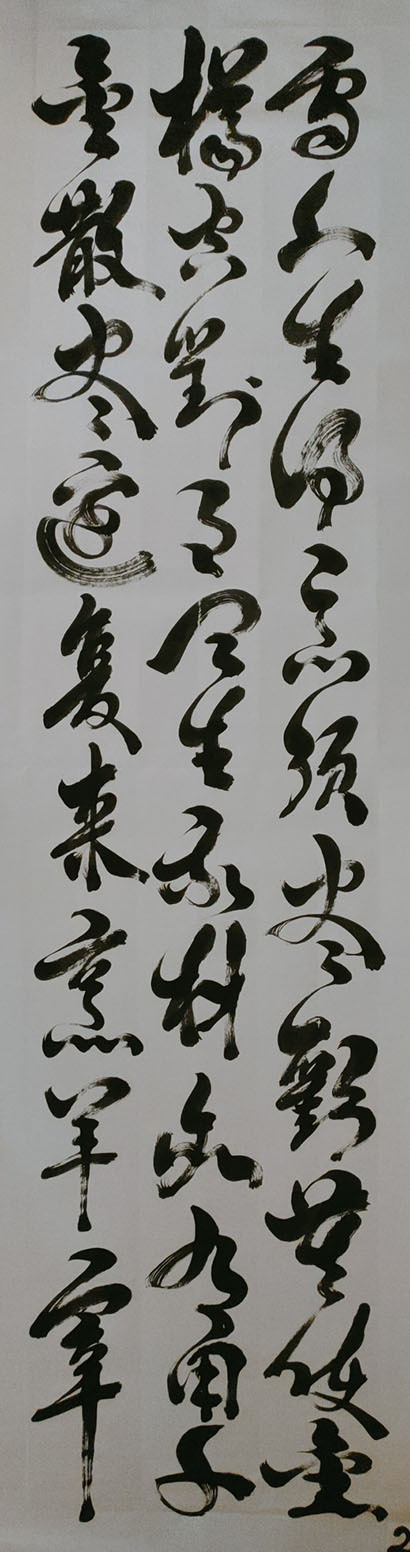 雪人生得意須盡歡莫使金
樽空對月天生我材必有用千
金散盡還复来烹羊宰
2